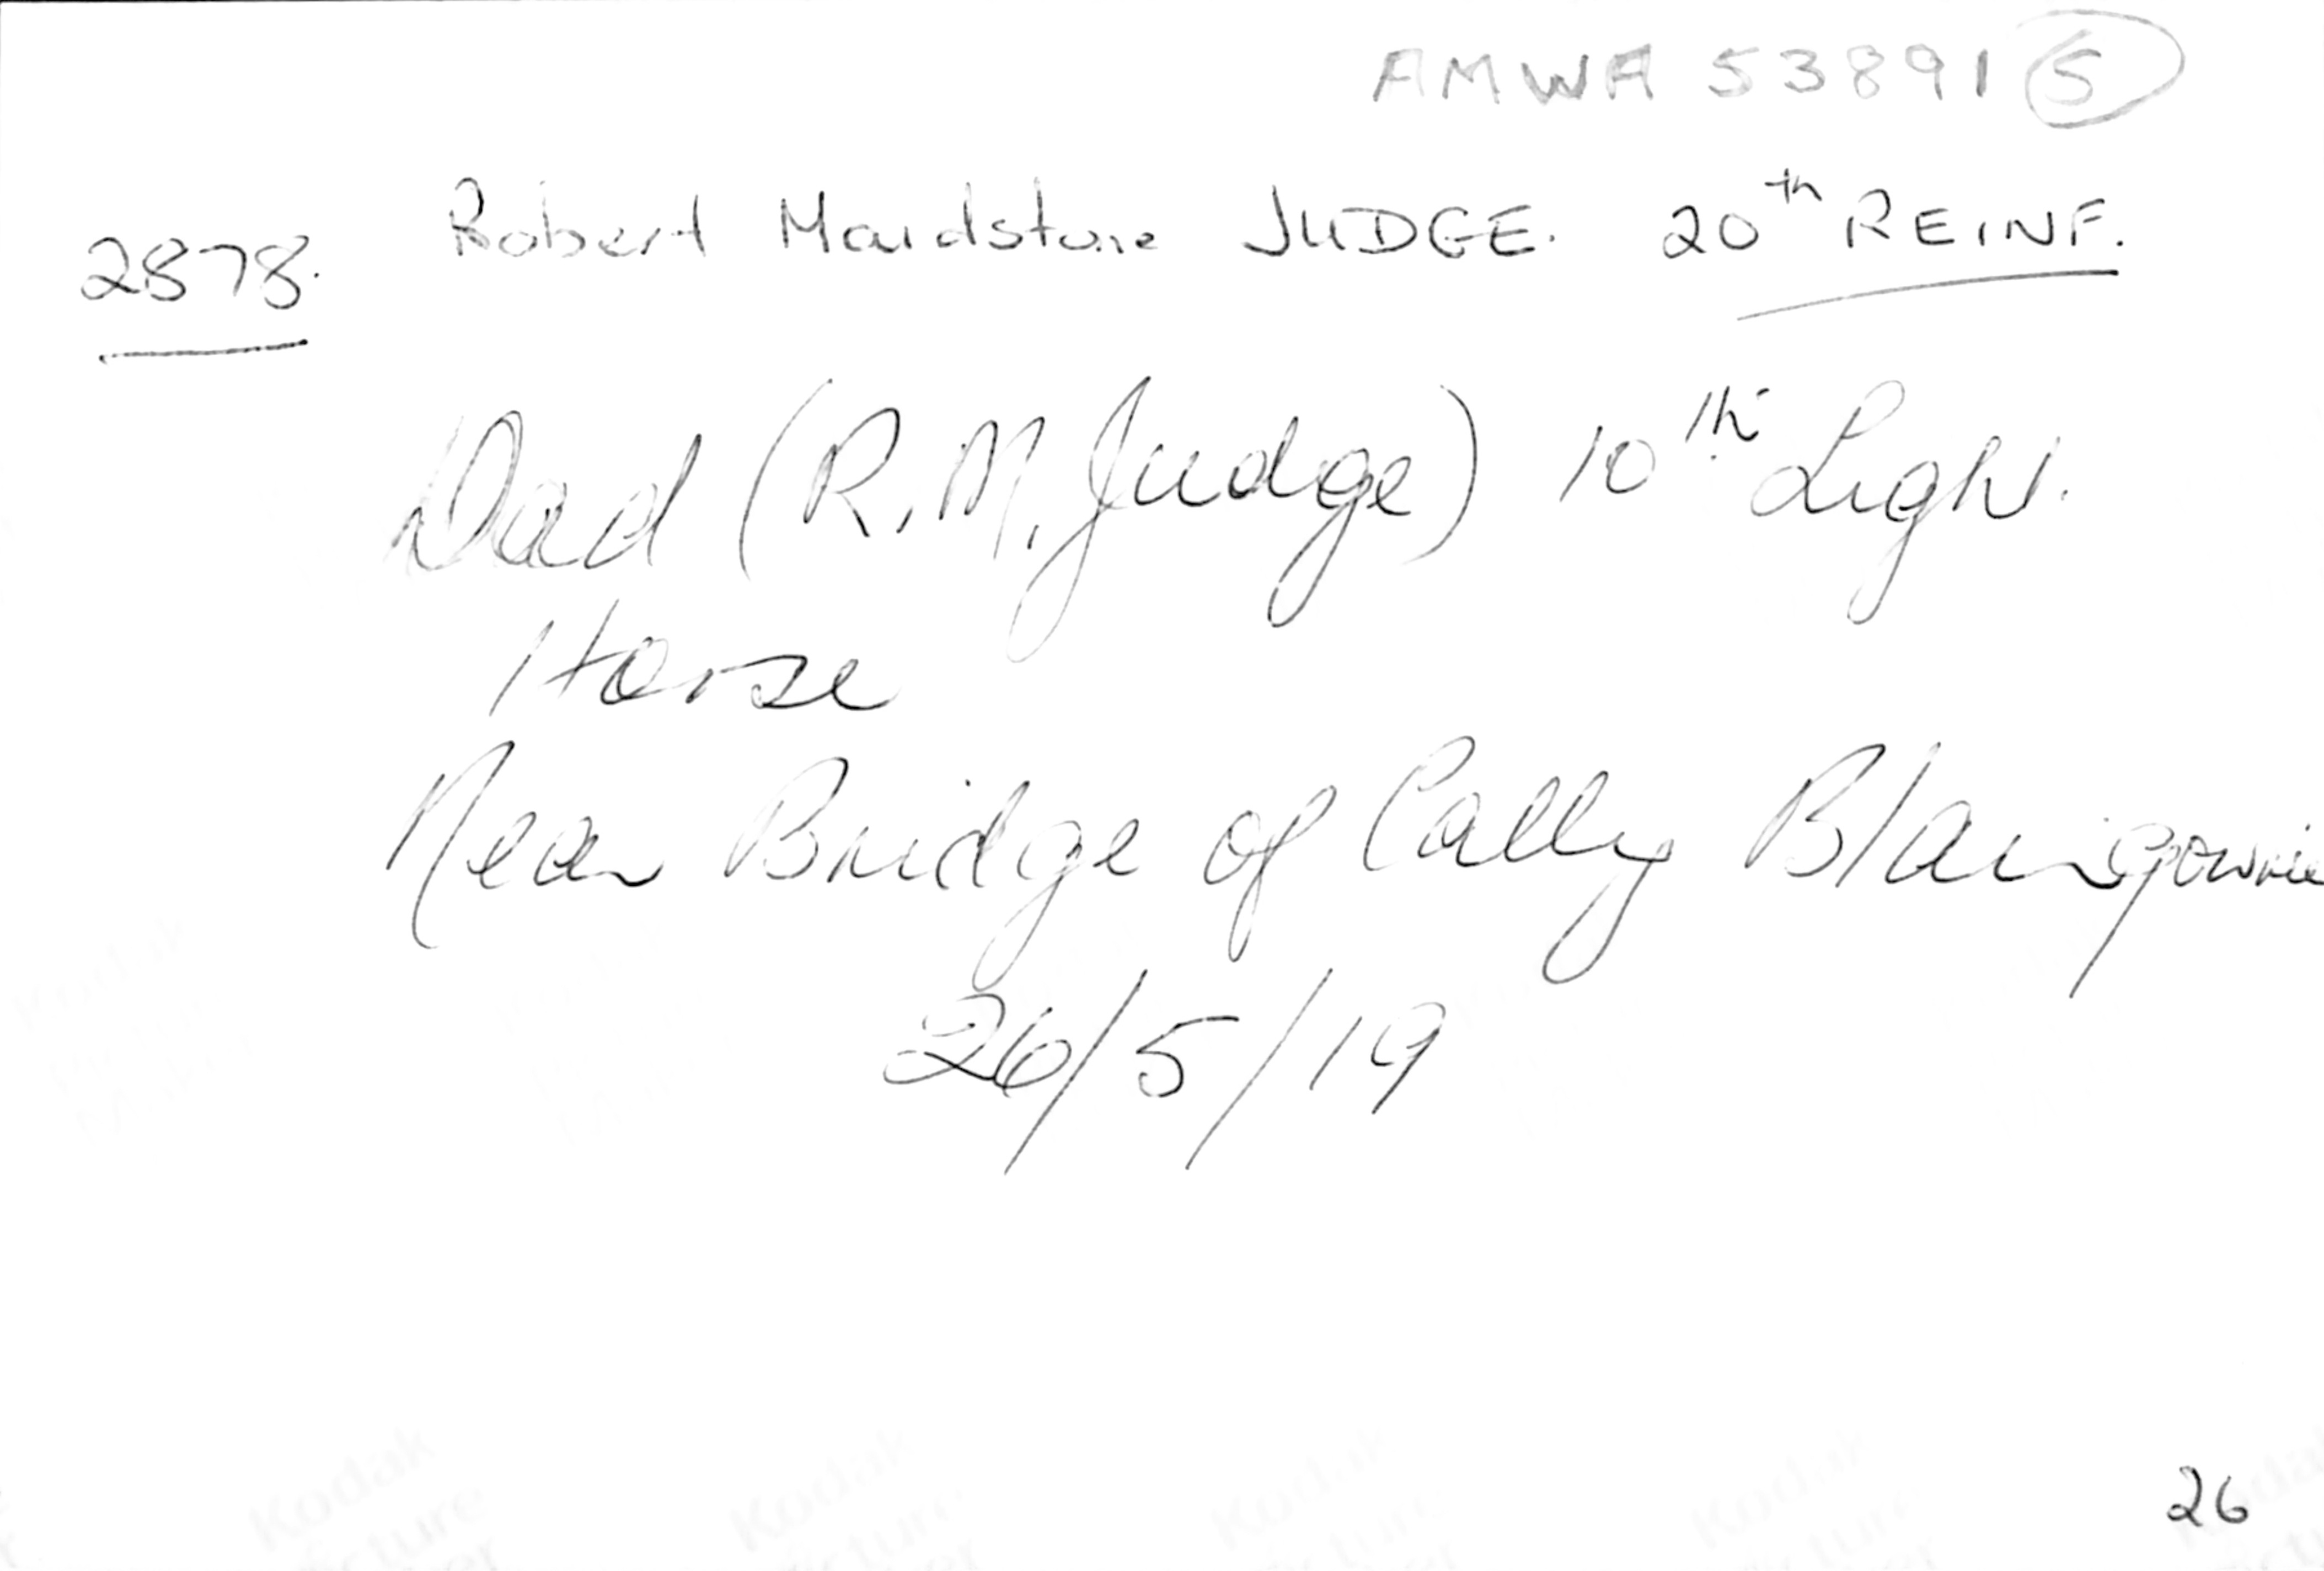 AMWA 53891 5
2878. Robert Maidstone JUDGE. 20th REINF.
Dad (R.M. Judge) 10th Light
Horse
Near Bridge of Cally Blairgowrie
26/5/19
Kodak Kodak Kodak Kodak
26